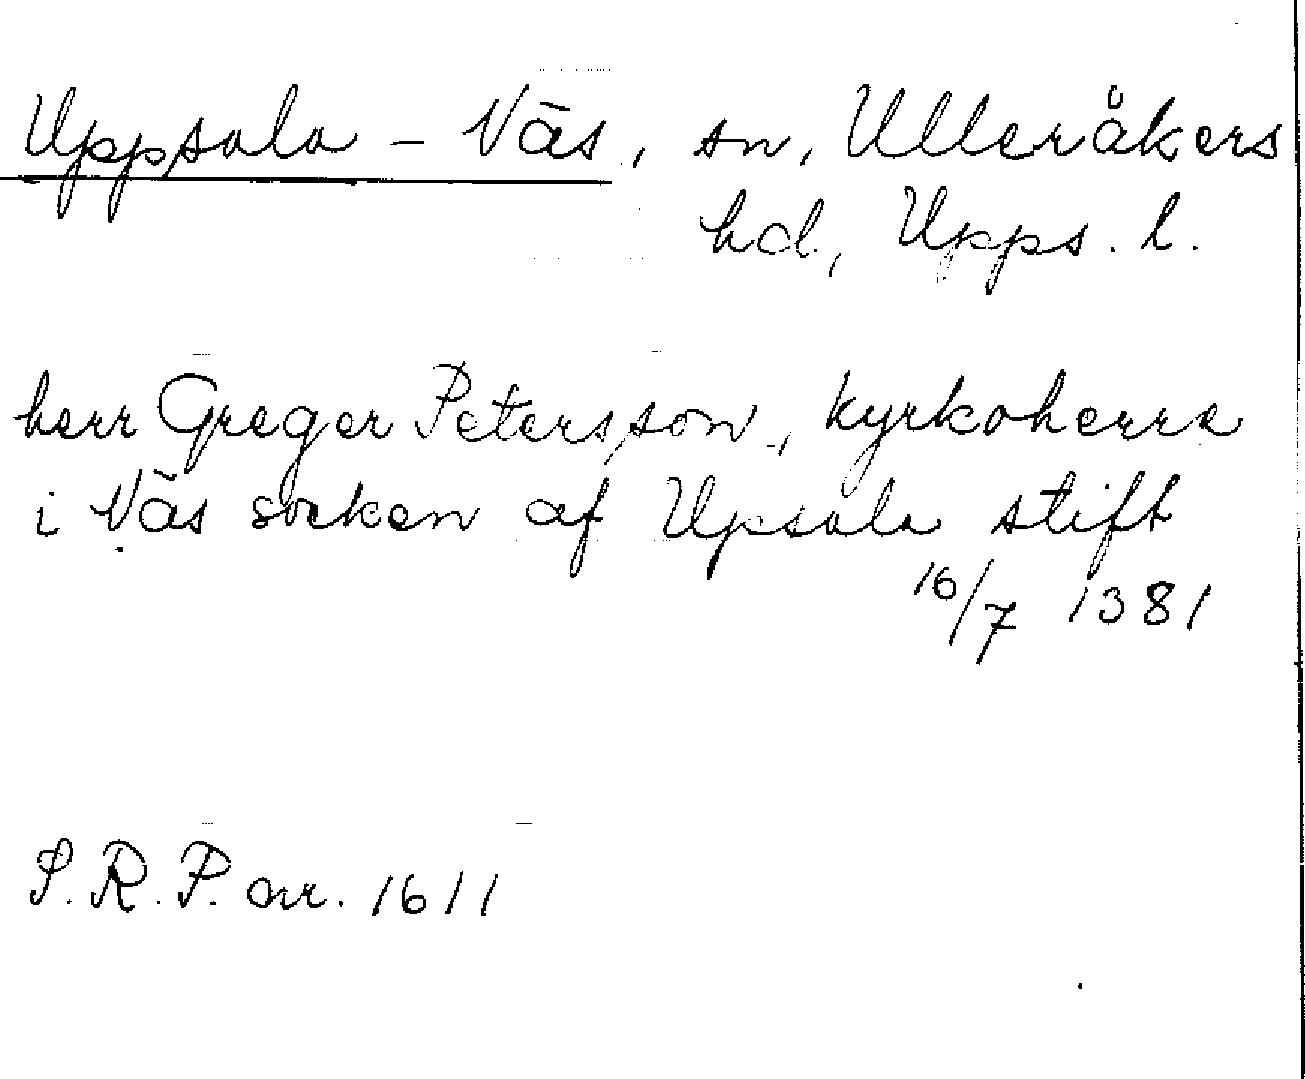 Uppsala - Näs, sn, Ulleråkers
hd, Upps. l.
herr Greger Petersson, kyrkoherre
i Näs socken af Upsala stift
16/7 1381
S. R. P. nr. 1611